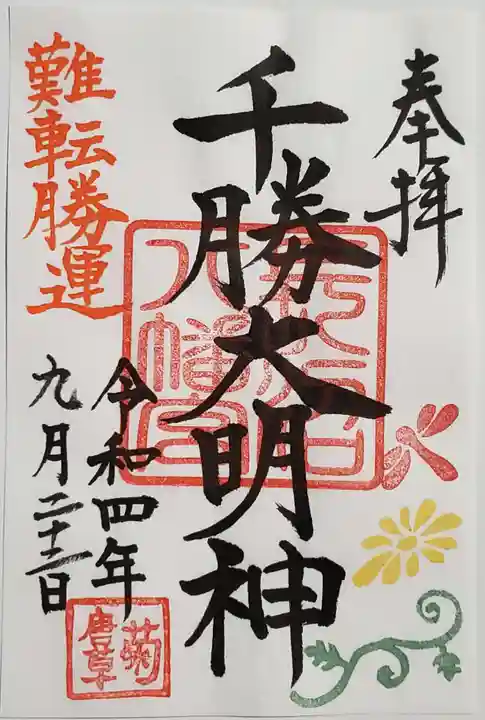 奉拝
千勝大明神
八幡宮
難転勝運
令和四年
九月二十二日
菊
唐草